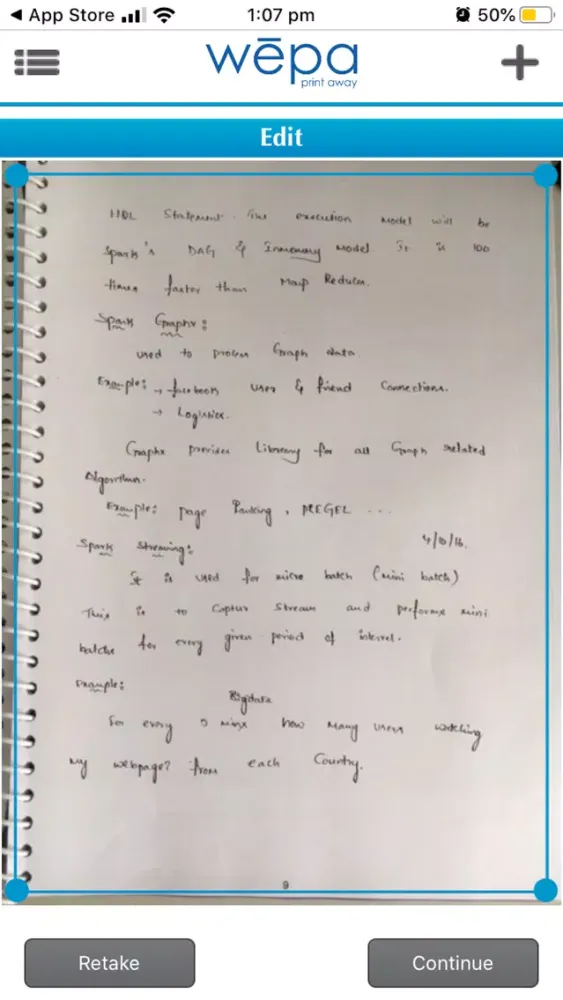 ◀ App Store 1:07 pm 50%
wēpa
print away
Edit
HQL Statement. The execution model will be
Spark's DAG & Inmemory Model. It is 100
times faster than Map Reducer.
Spark Graphx:
used to process Graph data.
Example: → facebook user & friend Connections.
→ Logistics.
Graphx provides Library for all Graph related
Algorithm.
Example: page Ranking, PREGEL ...
Spark Streaming: 4/10/16.
It is used for micro batch (mini batch)
This is to Capture Stream and performs mini
batche for every given period of interval.
Example:
Bigdata
for every 5 mins how many users watching
my webpage? from each Country.
9
Retake
Continue